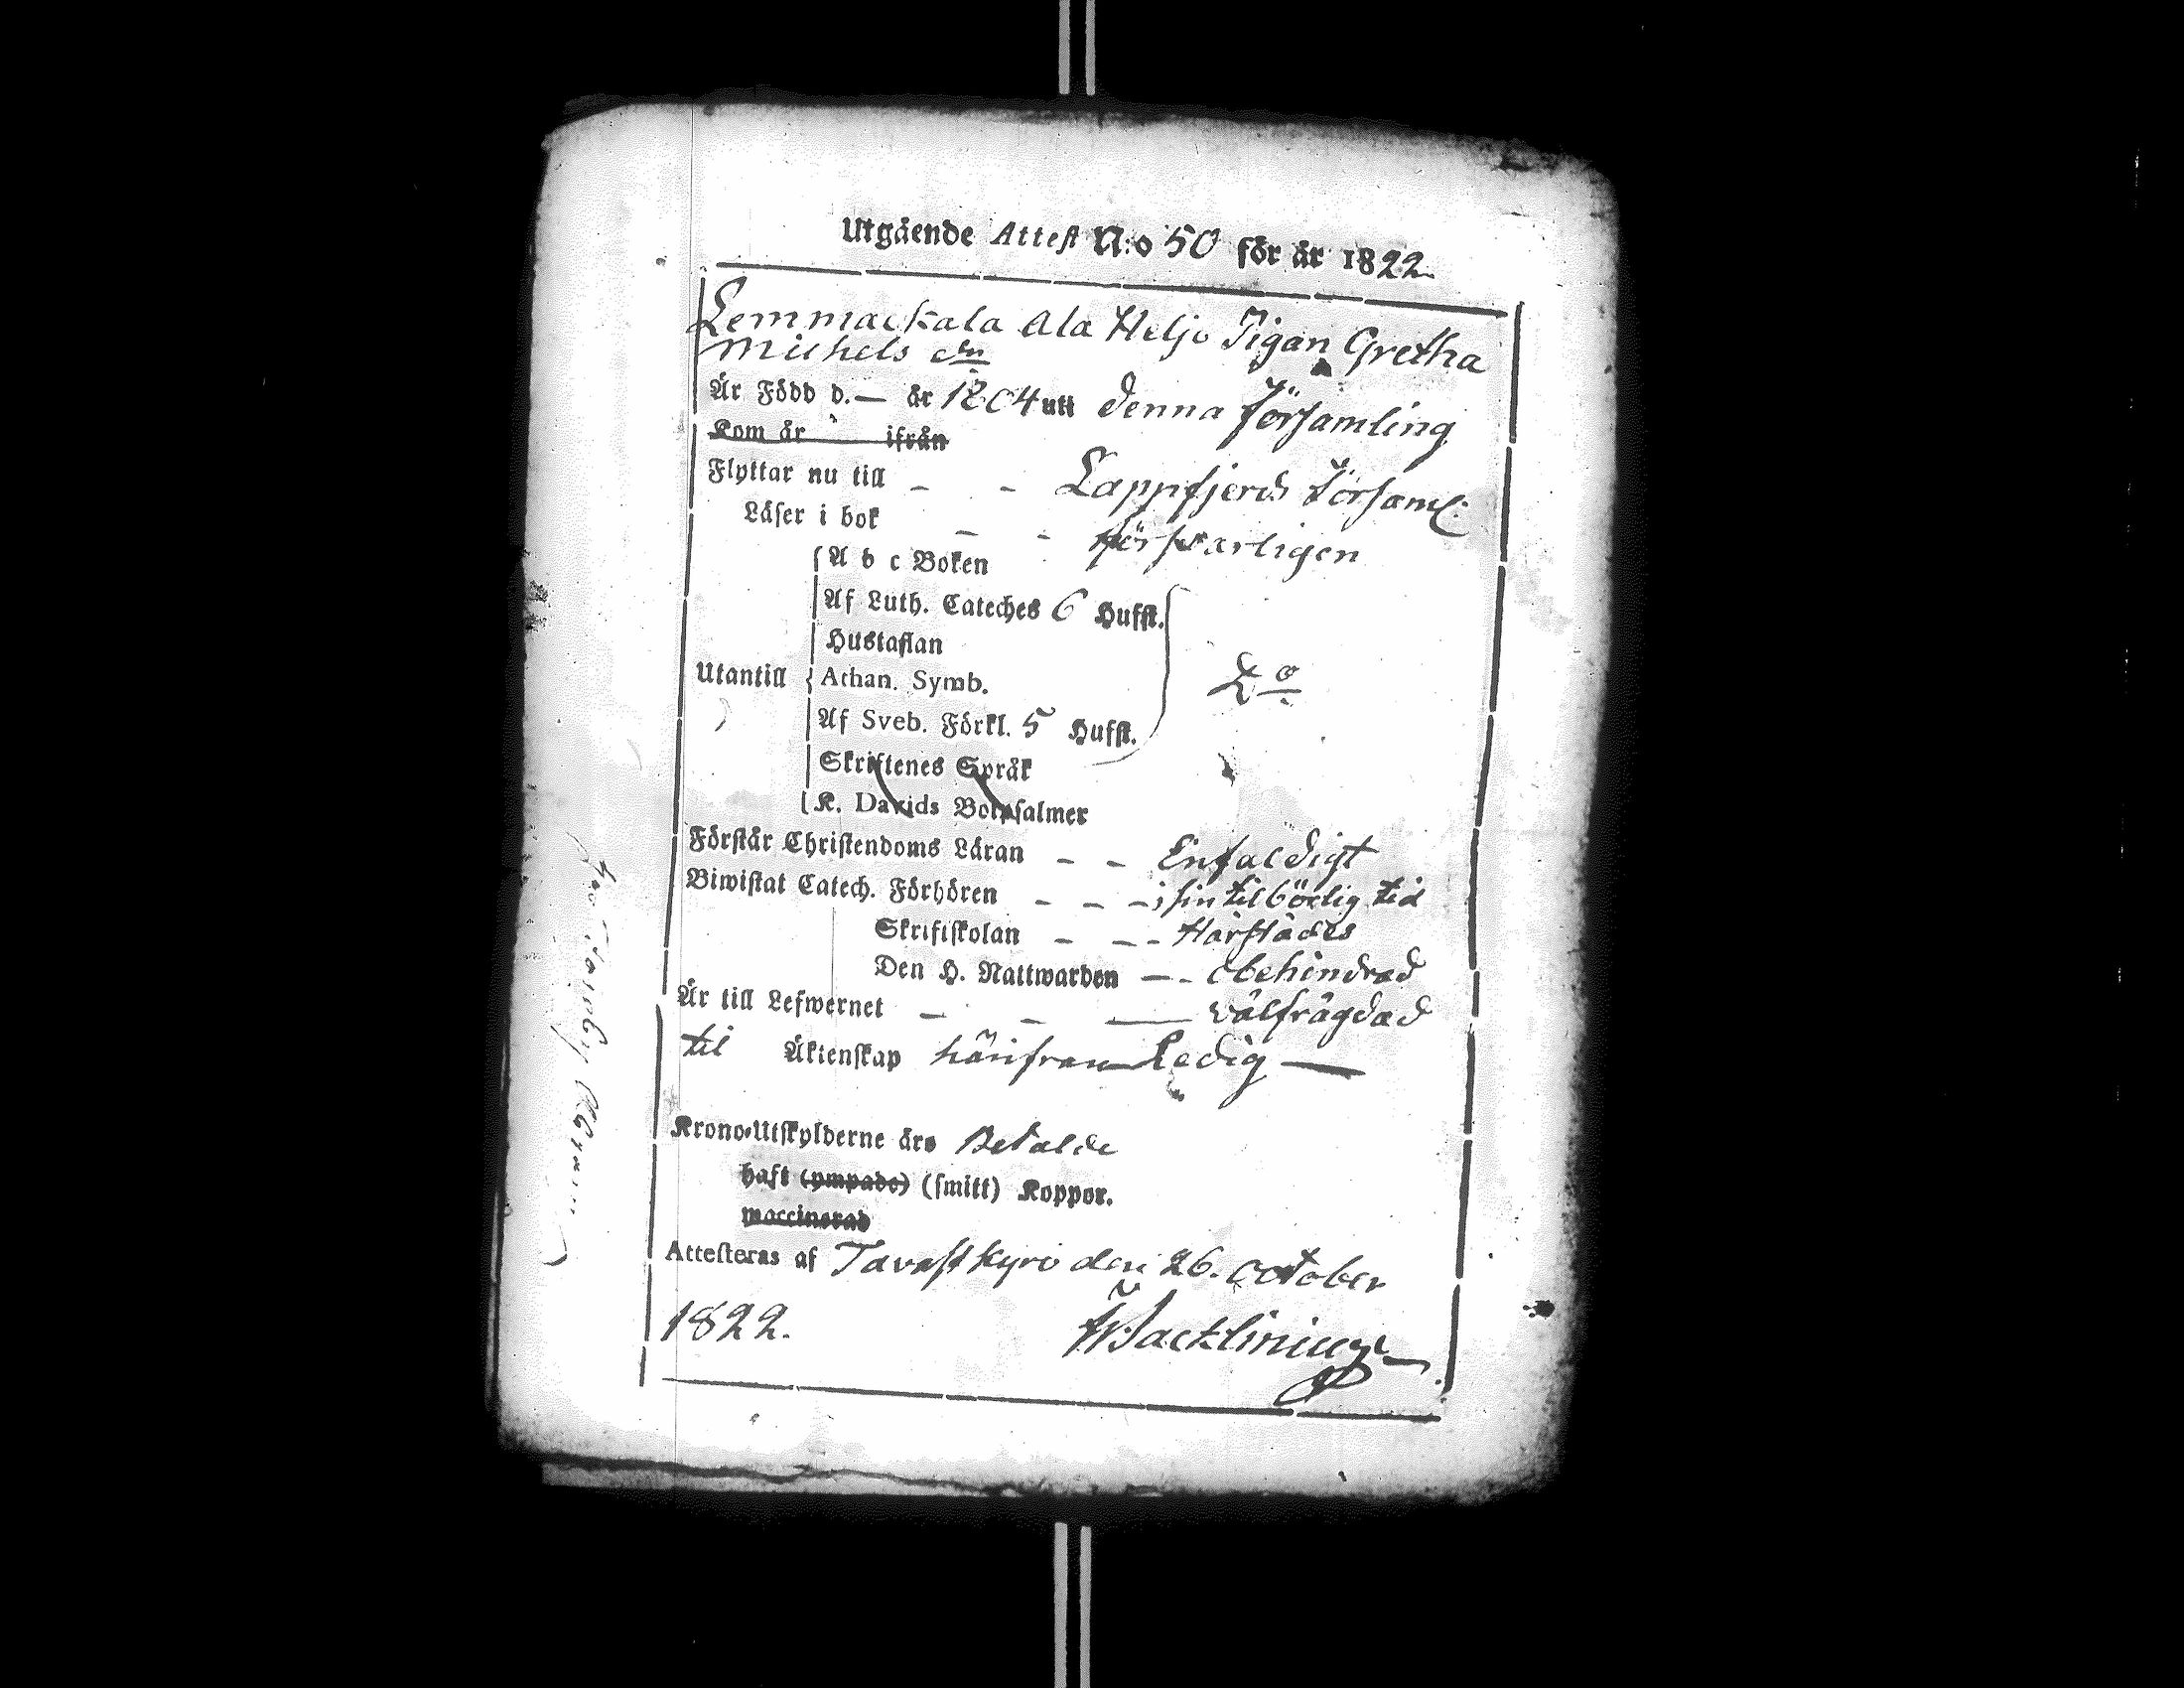 Utgående Attest N:o 50 för år 1822.
Lemmackala Ala Heljo Pigan Gretha
Michels dr
Är Född d. — år 1804 utt denna Församling
Kom år ifrån
Flyttar nu till - - Lappfjerds Församl:
Läser i bok - - försvarligen
A b c Boken
Af Luth. Cateches 6 Hufst.
Hustaflan
Utantill Athan. Symb. Do
Af Sveb. Förkl. 5 Hufst.
Skriftenes Språk
K. Davids Botpsalmer
Förstår Christendoms Läran - - Enfaldigt
Biwistat Catech. Förhören - - - i sin tilbörlig tid
Skriftskolan - - - Härstädes
Den H. Nattwarden - - obehindrad
Är till Lefwernet - - — välfrägdad
til Äktenskap härifran Ledig —
Krono-Utskylderne äro Betalde
haft (ympade) (smitt) Koppor.
waccinerad
Attesteras af Tavastkyro den 26. October
1822.